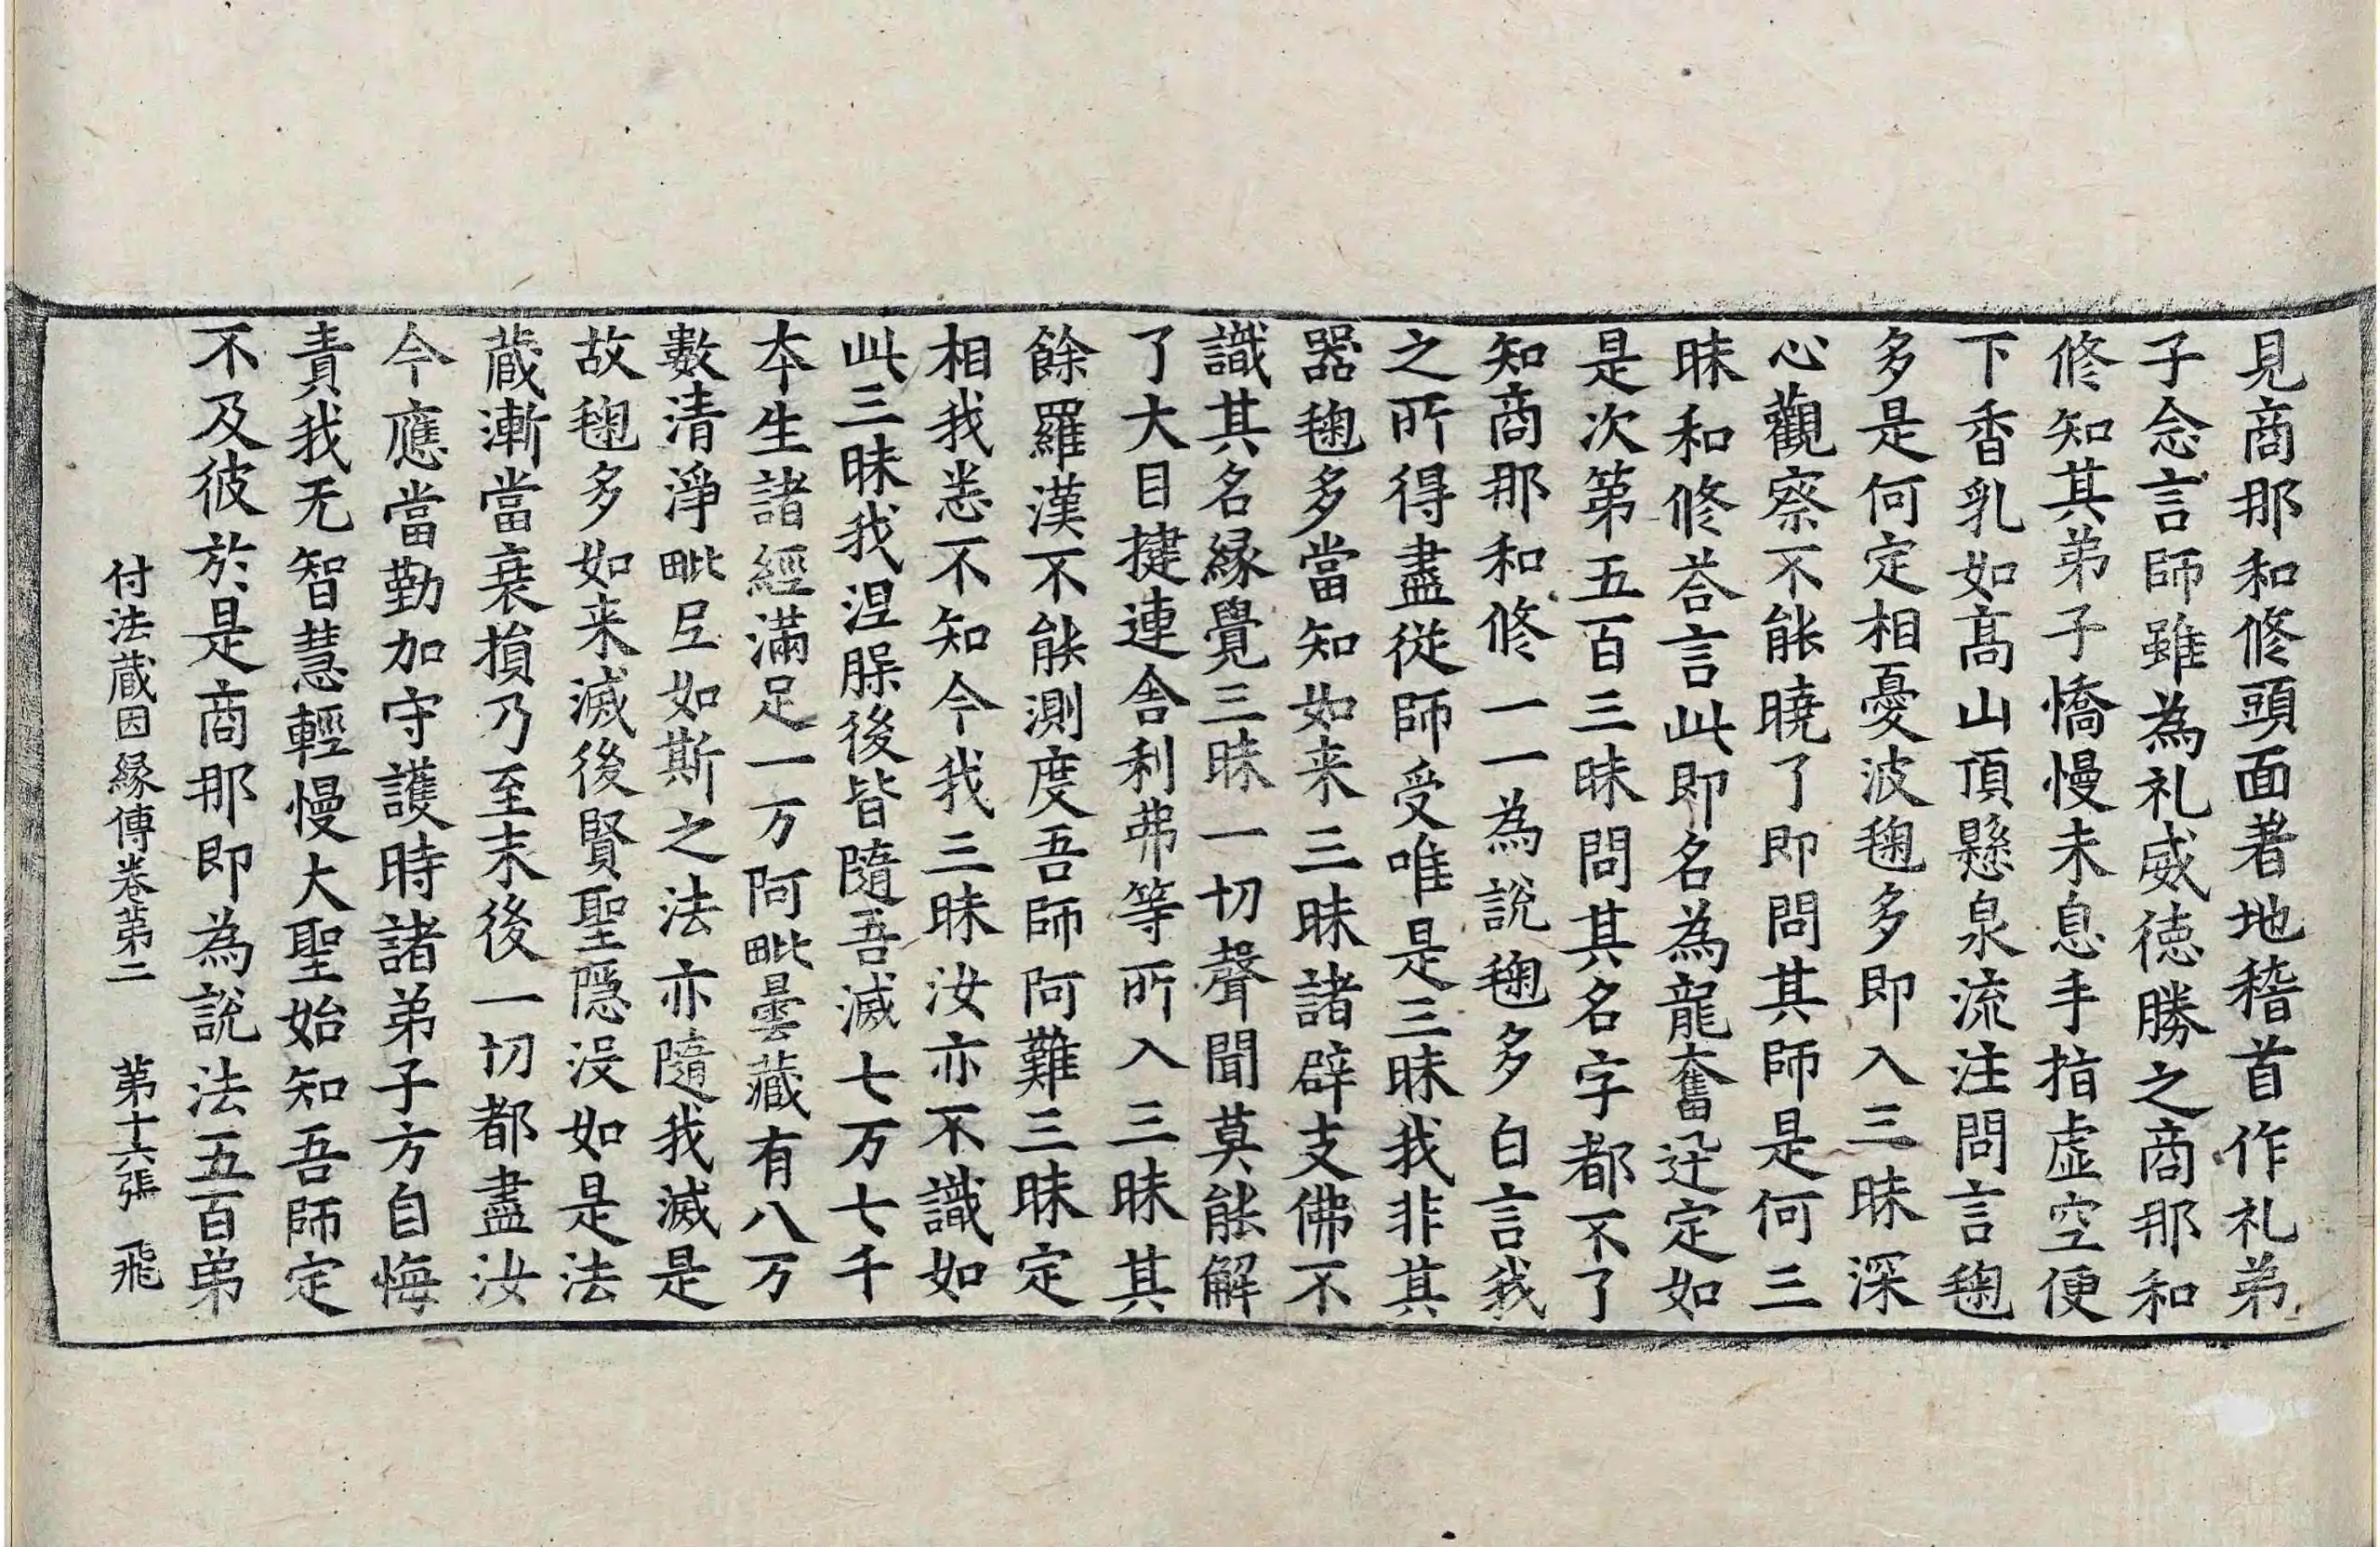 見商那和修頭面著地稽首作礼弟
子念言師雖為礼威徳勝之商那和
修知其弟子憍慢未息手指虚空便
下香乳如髙山頂懸泉流注問言毱
多是何定相憂波毱多即入三昧深
心觀察不能曉了即問其師是何三
昧和修荅言此即名為龍奮迅定如
是次第五百三昧問其名字都不了
知商那和修一一為說毱多白言我
之所得盡從師受唯是三昧我非其
器毱多當知如来三昧諸辟支佛不
識其名縁覺三昧一切聲聞莫能解
了大目揵連舍利弗等所入三昧其
餘羅漢不能測度吾師阿難三昧定
相我悉不知今我三昧汝亦不識如
此三昧我涅槃後皆隨吾滅七万七千
本生諸經滿足一万阿毗曇藏有八万
數清淨毗尼如斯之法亦隨我滅是
故毱多如来滅後賢聖隠没如是法
蔵漸當衰損乃至末後一切都盡汝
今應當勤加守護時諸弟子方自悔
責我无智慧輕慢大聖始知吾師定
不及彼於是商那即為說法五百弟
付法蔵因縁傳卷第二　第十六張　飛